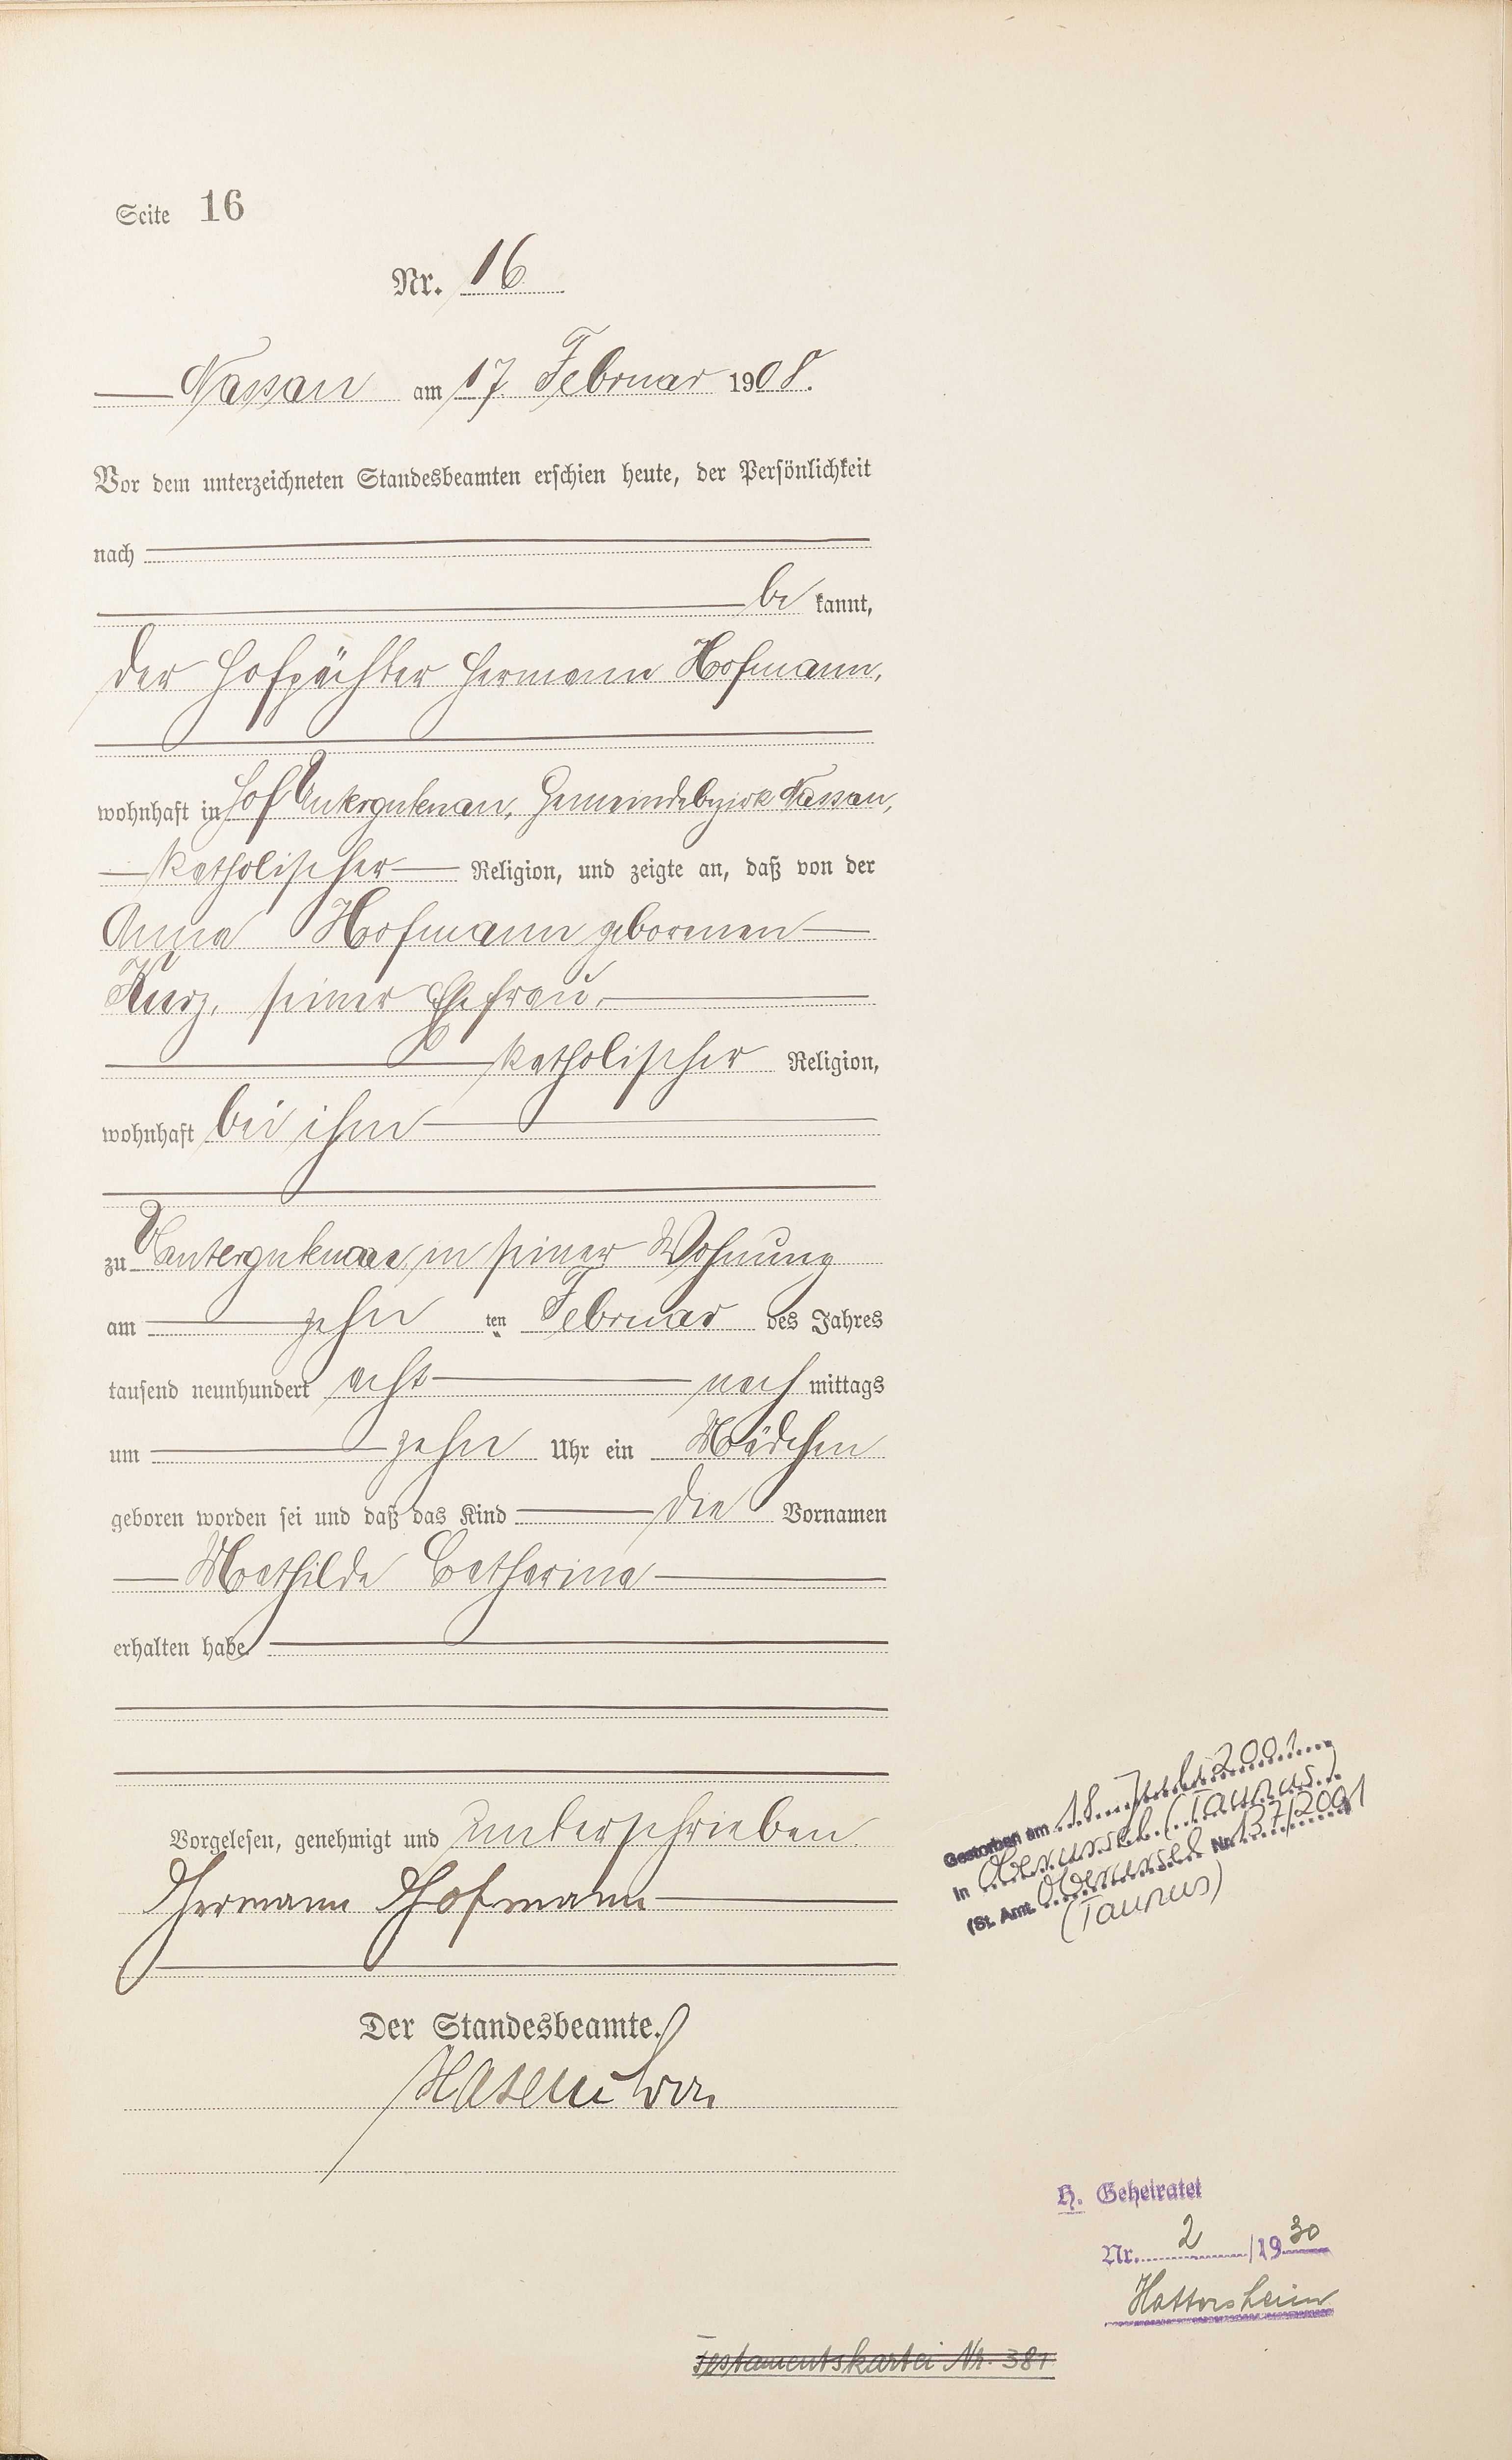 Seite 16
Nr. 16
Nassau am 17. Februar 1908.
Vor dem unterzeichneten Standesbeamten erschien heute, der Persönlichkeit
nach
be kannt,
der Hofpächter Hermann Hofmann,
wohnhaft in Hof Untergutenau, Gemeindebezirk Nassau,
katholischer Religion, und zeigte an, daß von der
Anna Hofmann geborenen
Kurz, seiner Ehefrau,
katholischer Religion,
wohnhaft bei ihm
zu Untergutenau, in seiner Wohnung
am zehn ten Februar des Jahres
tausend neunhundert acht nach mittags
um zehn Uhr ein Mädchen
geboren worden sei und daß das Kind die Vornamen
Mathilde Catharina
erhalten habe
Vorgelesen, genehmigt und unterschrieben
Hermann Hofmann
Der Standesbeamte.
Gestorben am 18. Juli 2001
in Oberursel (Taunus)
(St. Amt. Oberursel Nr. 137/2001
(Taunus)
H. Geheiratet
Nr. 2 /1930
Hattersheim
Testamentskartei Nr. 381